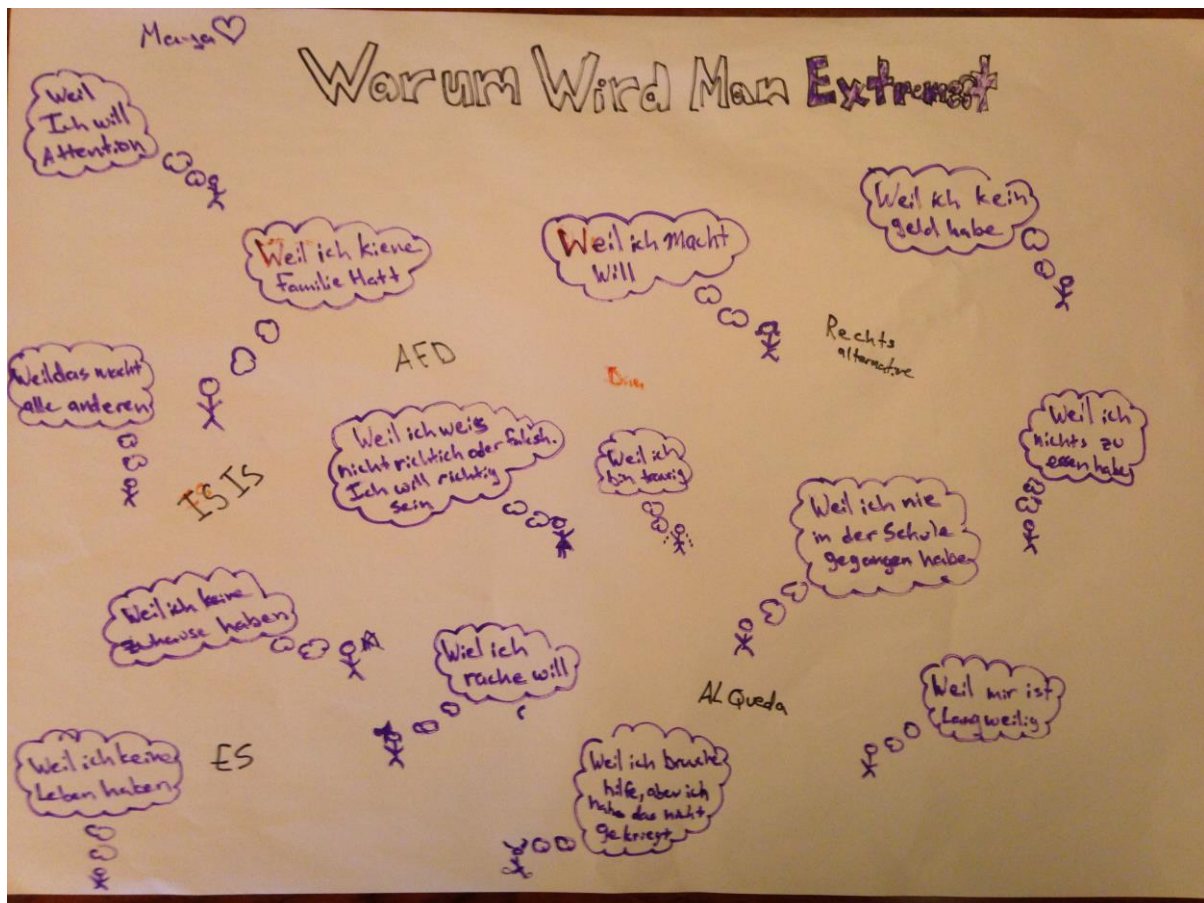 Maya
Warum Wird Man Extremest
Weil
Ich will
Attention
Weil ich kein
geld habe
Weil ich kiene
Familie Hatt
Weil ich Macht
Will
Rechts
alternative
AFD
Weil das macht
alle anderen
Weil ich
nichts zu
essen habe
Weil ich weis
nicht richtich oder falsch.
Ich will richtig
sein
Weil ich
bin traurig
ISIS
Weil ich nie
in der Schule
gegangen habe
Weil ich keine
Zuhause haben
Wiel ich
rache will
AL Queda
Weil mir ist
Langweilig
Weil ich keine
Leben haben
ES
Weil ich brauche
hilfe, aber ich
habe das nicht
gekriegt